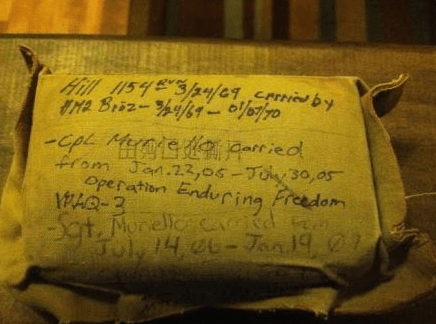 Hill 1154 RVN 3/24/69 carried by
HM2 Broz - 3/24/69 - 01/07/70
- Cpl Murello carried
from Jan.22,05 - July 30,05
Operation Enduring Freedom
VMAQ-3
Sgt. Murello carried from
July 14, 06 - Jan 19, 07